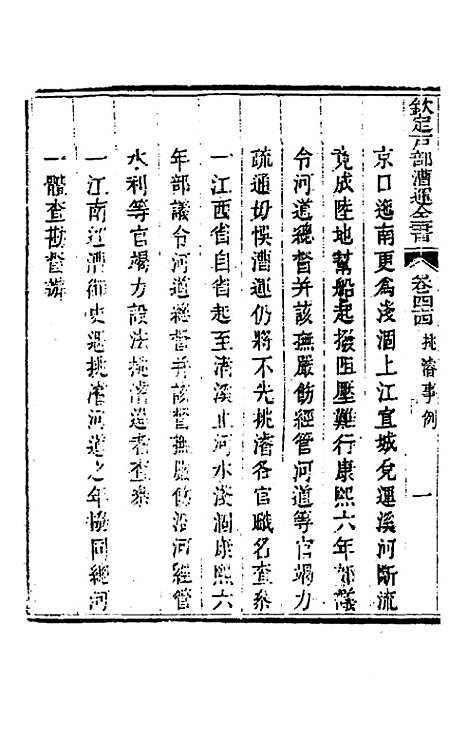 欽定戶部漕運全書 卷四四 挑濬事例 一
京口迤南更為淺涸上江宜城兌運溪河斷流
竟成陸地幫船起撥阻壓難行康熙六年部議
令河道總督并該撫嚴飭經管河道等官竭力
疏通毋悞漕運仍將不先挑濬各官職名查叅
一江西省自省起至清溪止河水淺涸康熙六
年部議令河道總督并該督撫嚴飭沿河經管
水利等官竭力設法挑濬違者查叅
一江南巡漕御史遇挑濬河道之年協同總河
一體查勘督辦